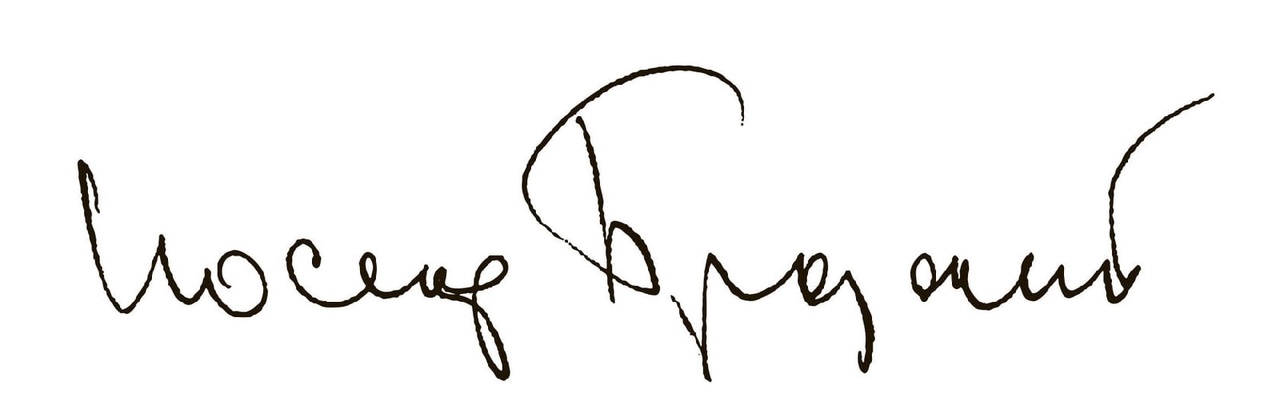 Иосиф Бродский